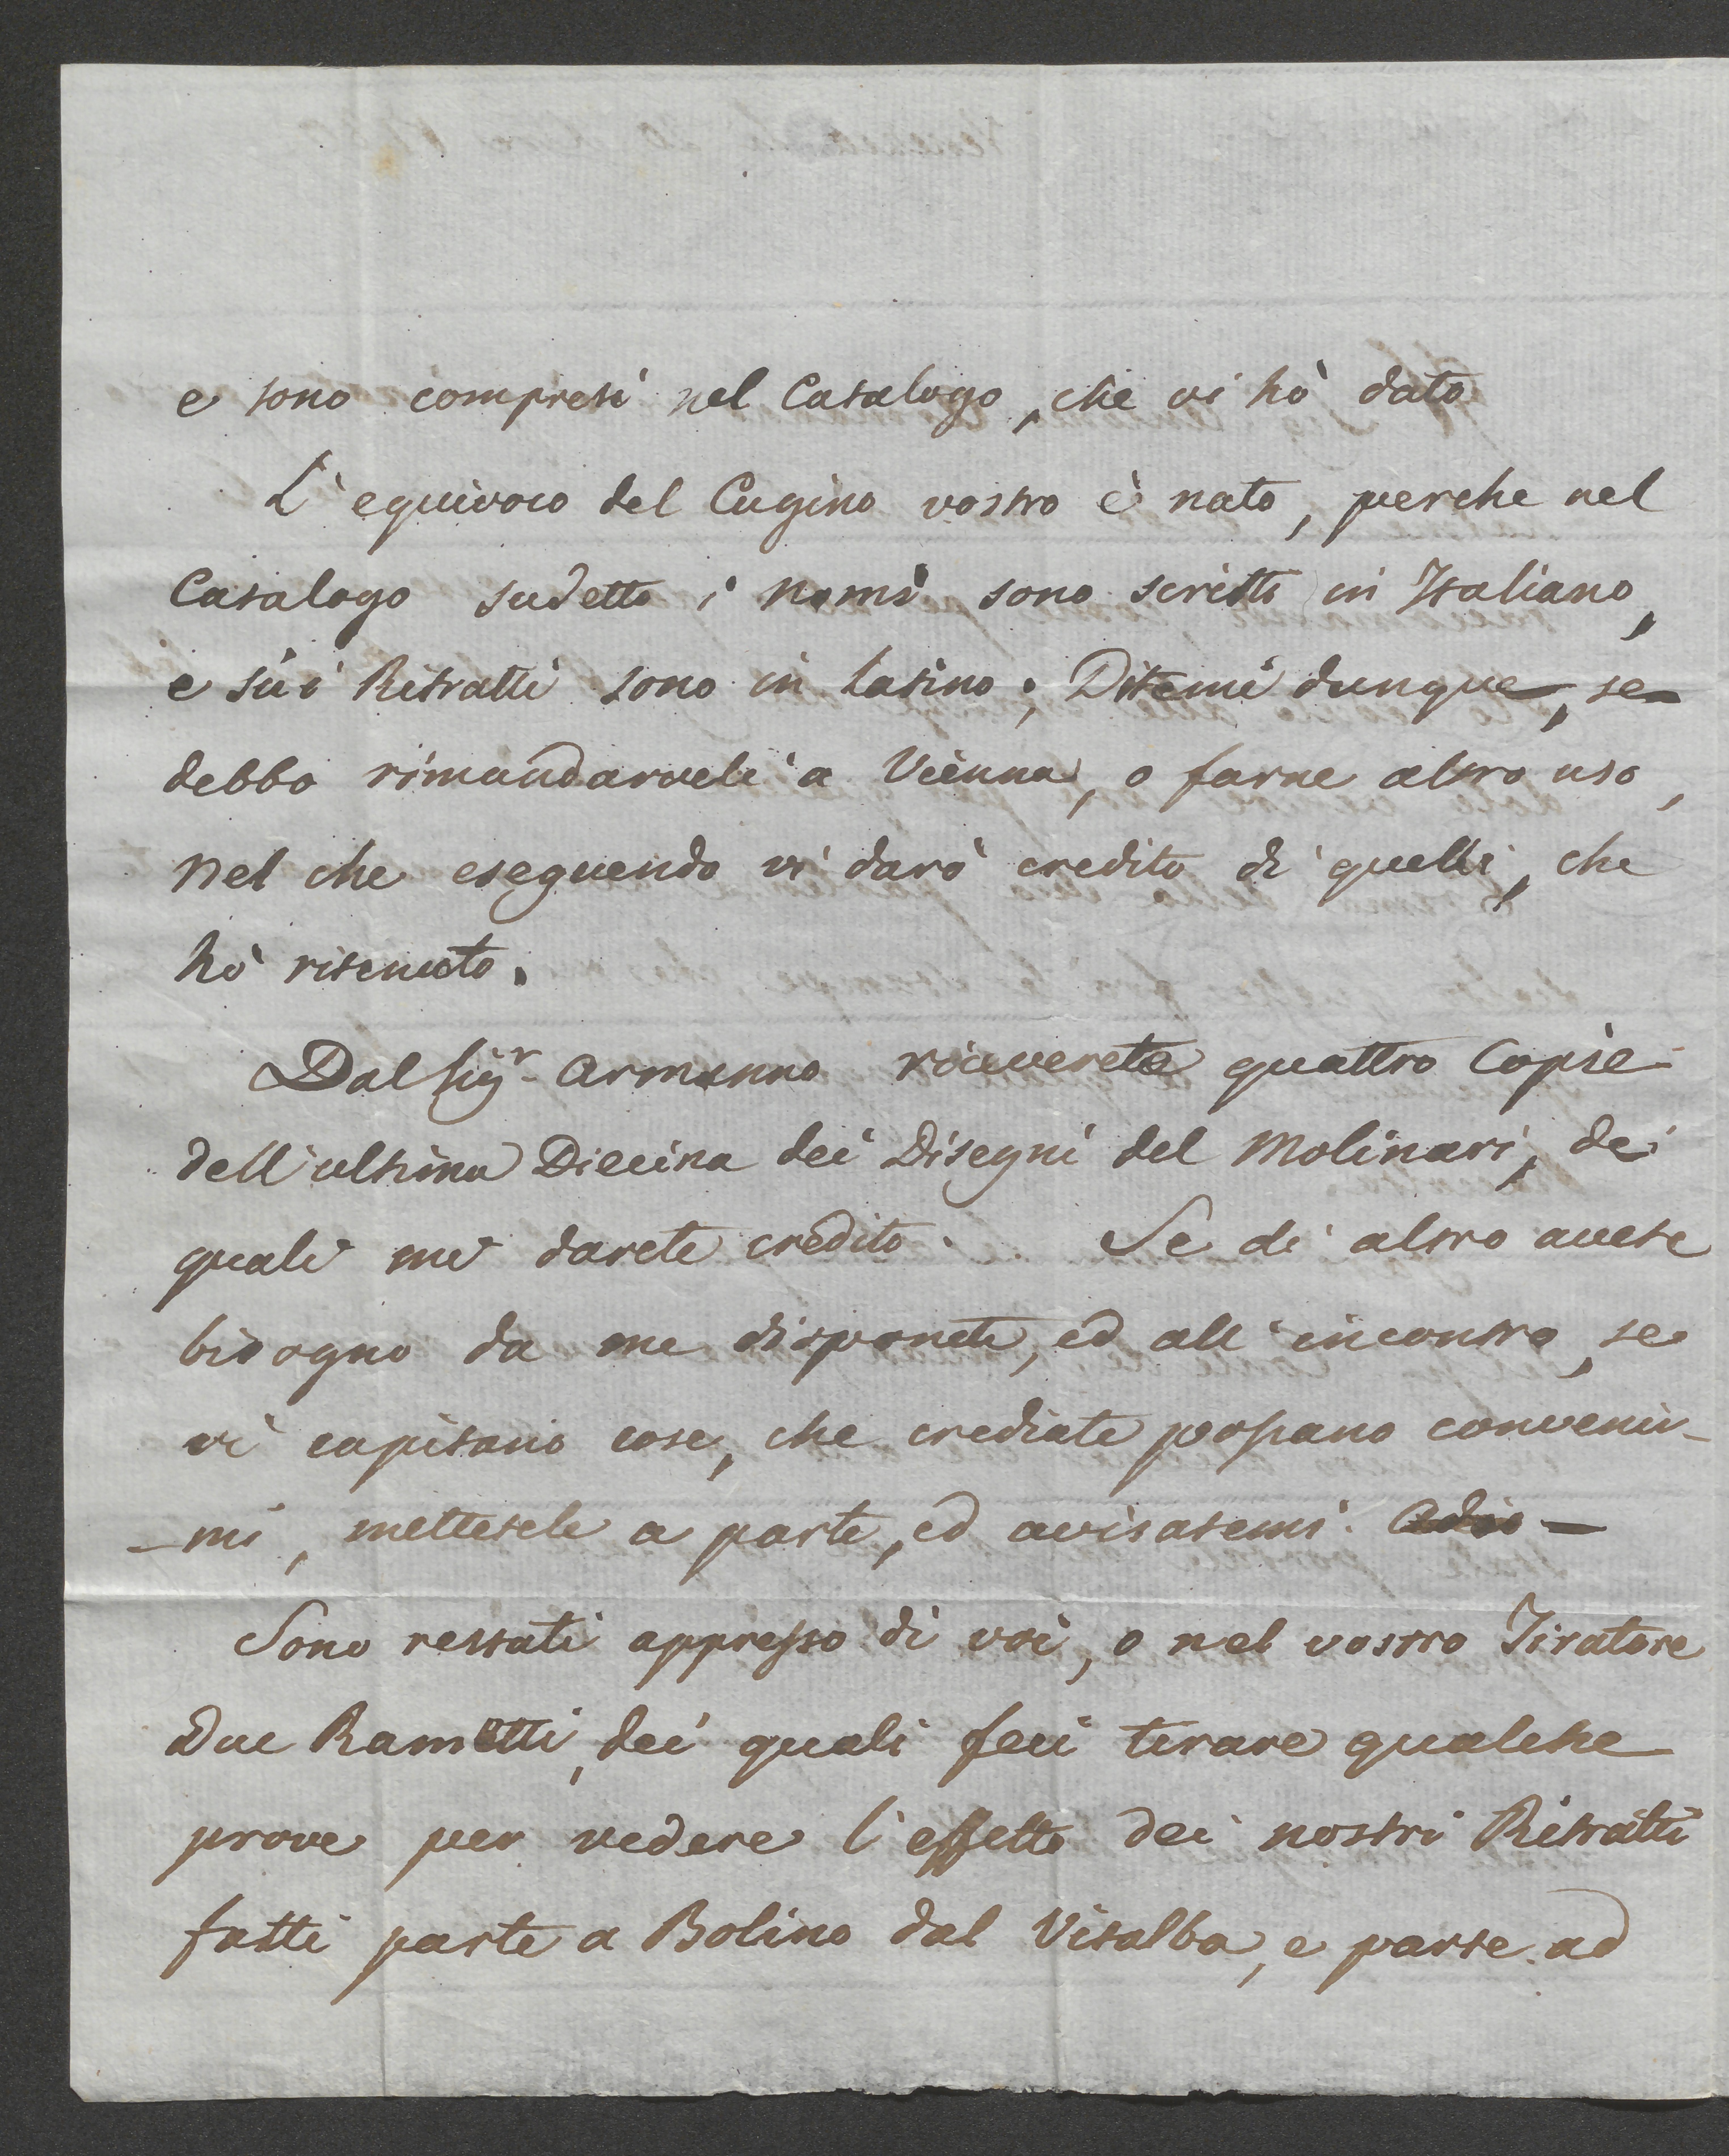 e sono compresi nel Catalogo, che vi hò dato
L'equivoco del Cugino vostro è nato, perche nel
Catalogo sudetto i nomi sono scritti in Italiano,
e sù i Ritratti sono in latino; Ditemi dunque, se
debbo rimandarveli a Vienna, o farne altro uso,
nel che eseguendo vi darò credito di quelli, che
hò ritenuto.
Dal Sigr. Armanno riceverete quattro Copie
dell'ultima Diecina dei Disegni del Molinari, dei
quali mi darete credito. Se di altro avete
bisogno da me disponete, ed all'incontro, se
vi capitano cose, che crediate possano convenir-
-mi, mettetele a parte, ed avisatemi. Adio —
Sono restati appresso di voi, o nel vostro Tiratore
Due Rametti, dei quali feci tirare qualche
prove per vedere l'effetto dei nostri Ritratti
fatti parte a Bolino dal Vitalba, e parte ad